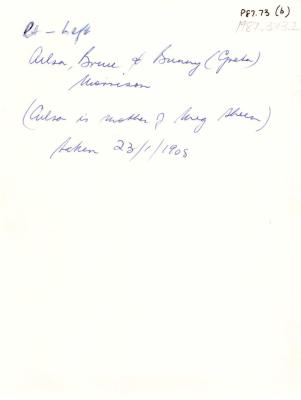 P87.73 (b)
P87.373.2
Rt - Left
Ailsa, Bruce & Bunny (Greta)
Morrison
(Ailsa is mother of Meg Sheen)
taken 23/1/1908